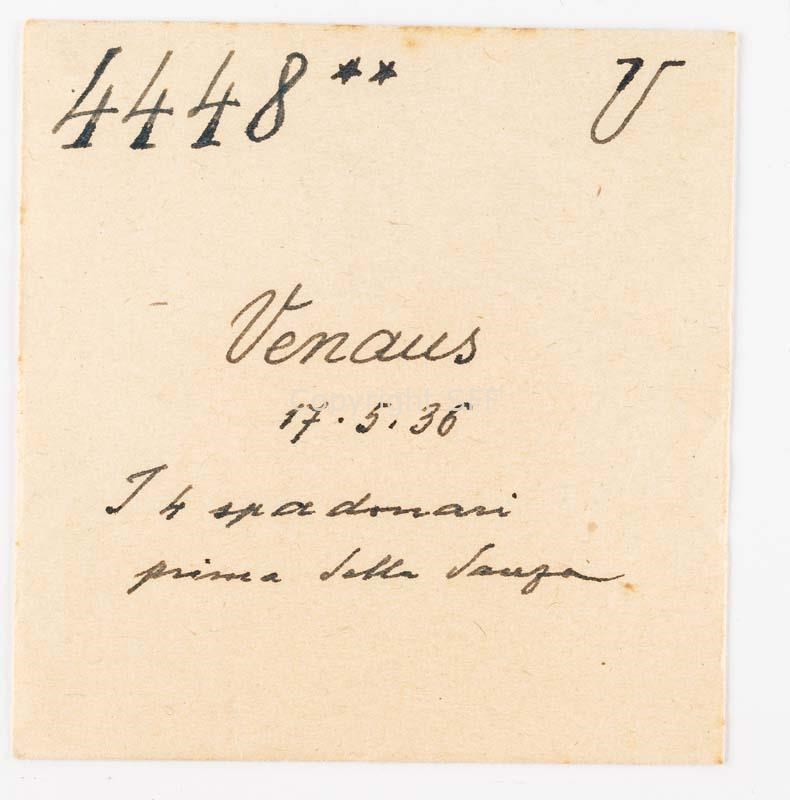 4448 ** V
Venaus
17.5.36
I 4 spadonari
prima della danza